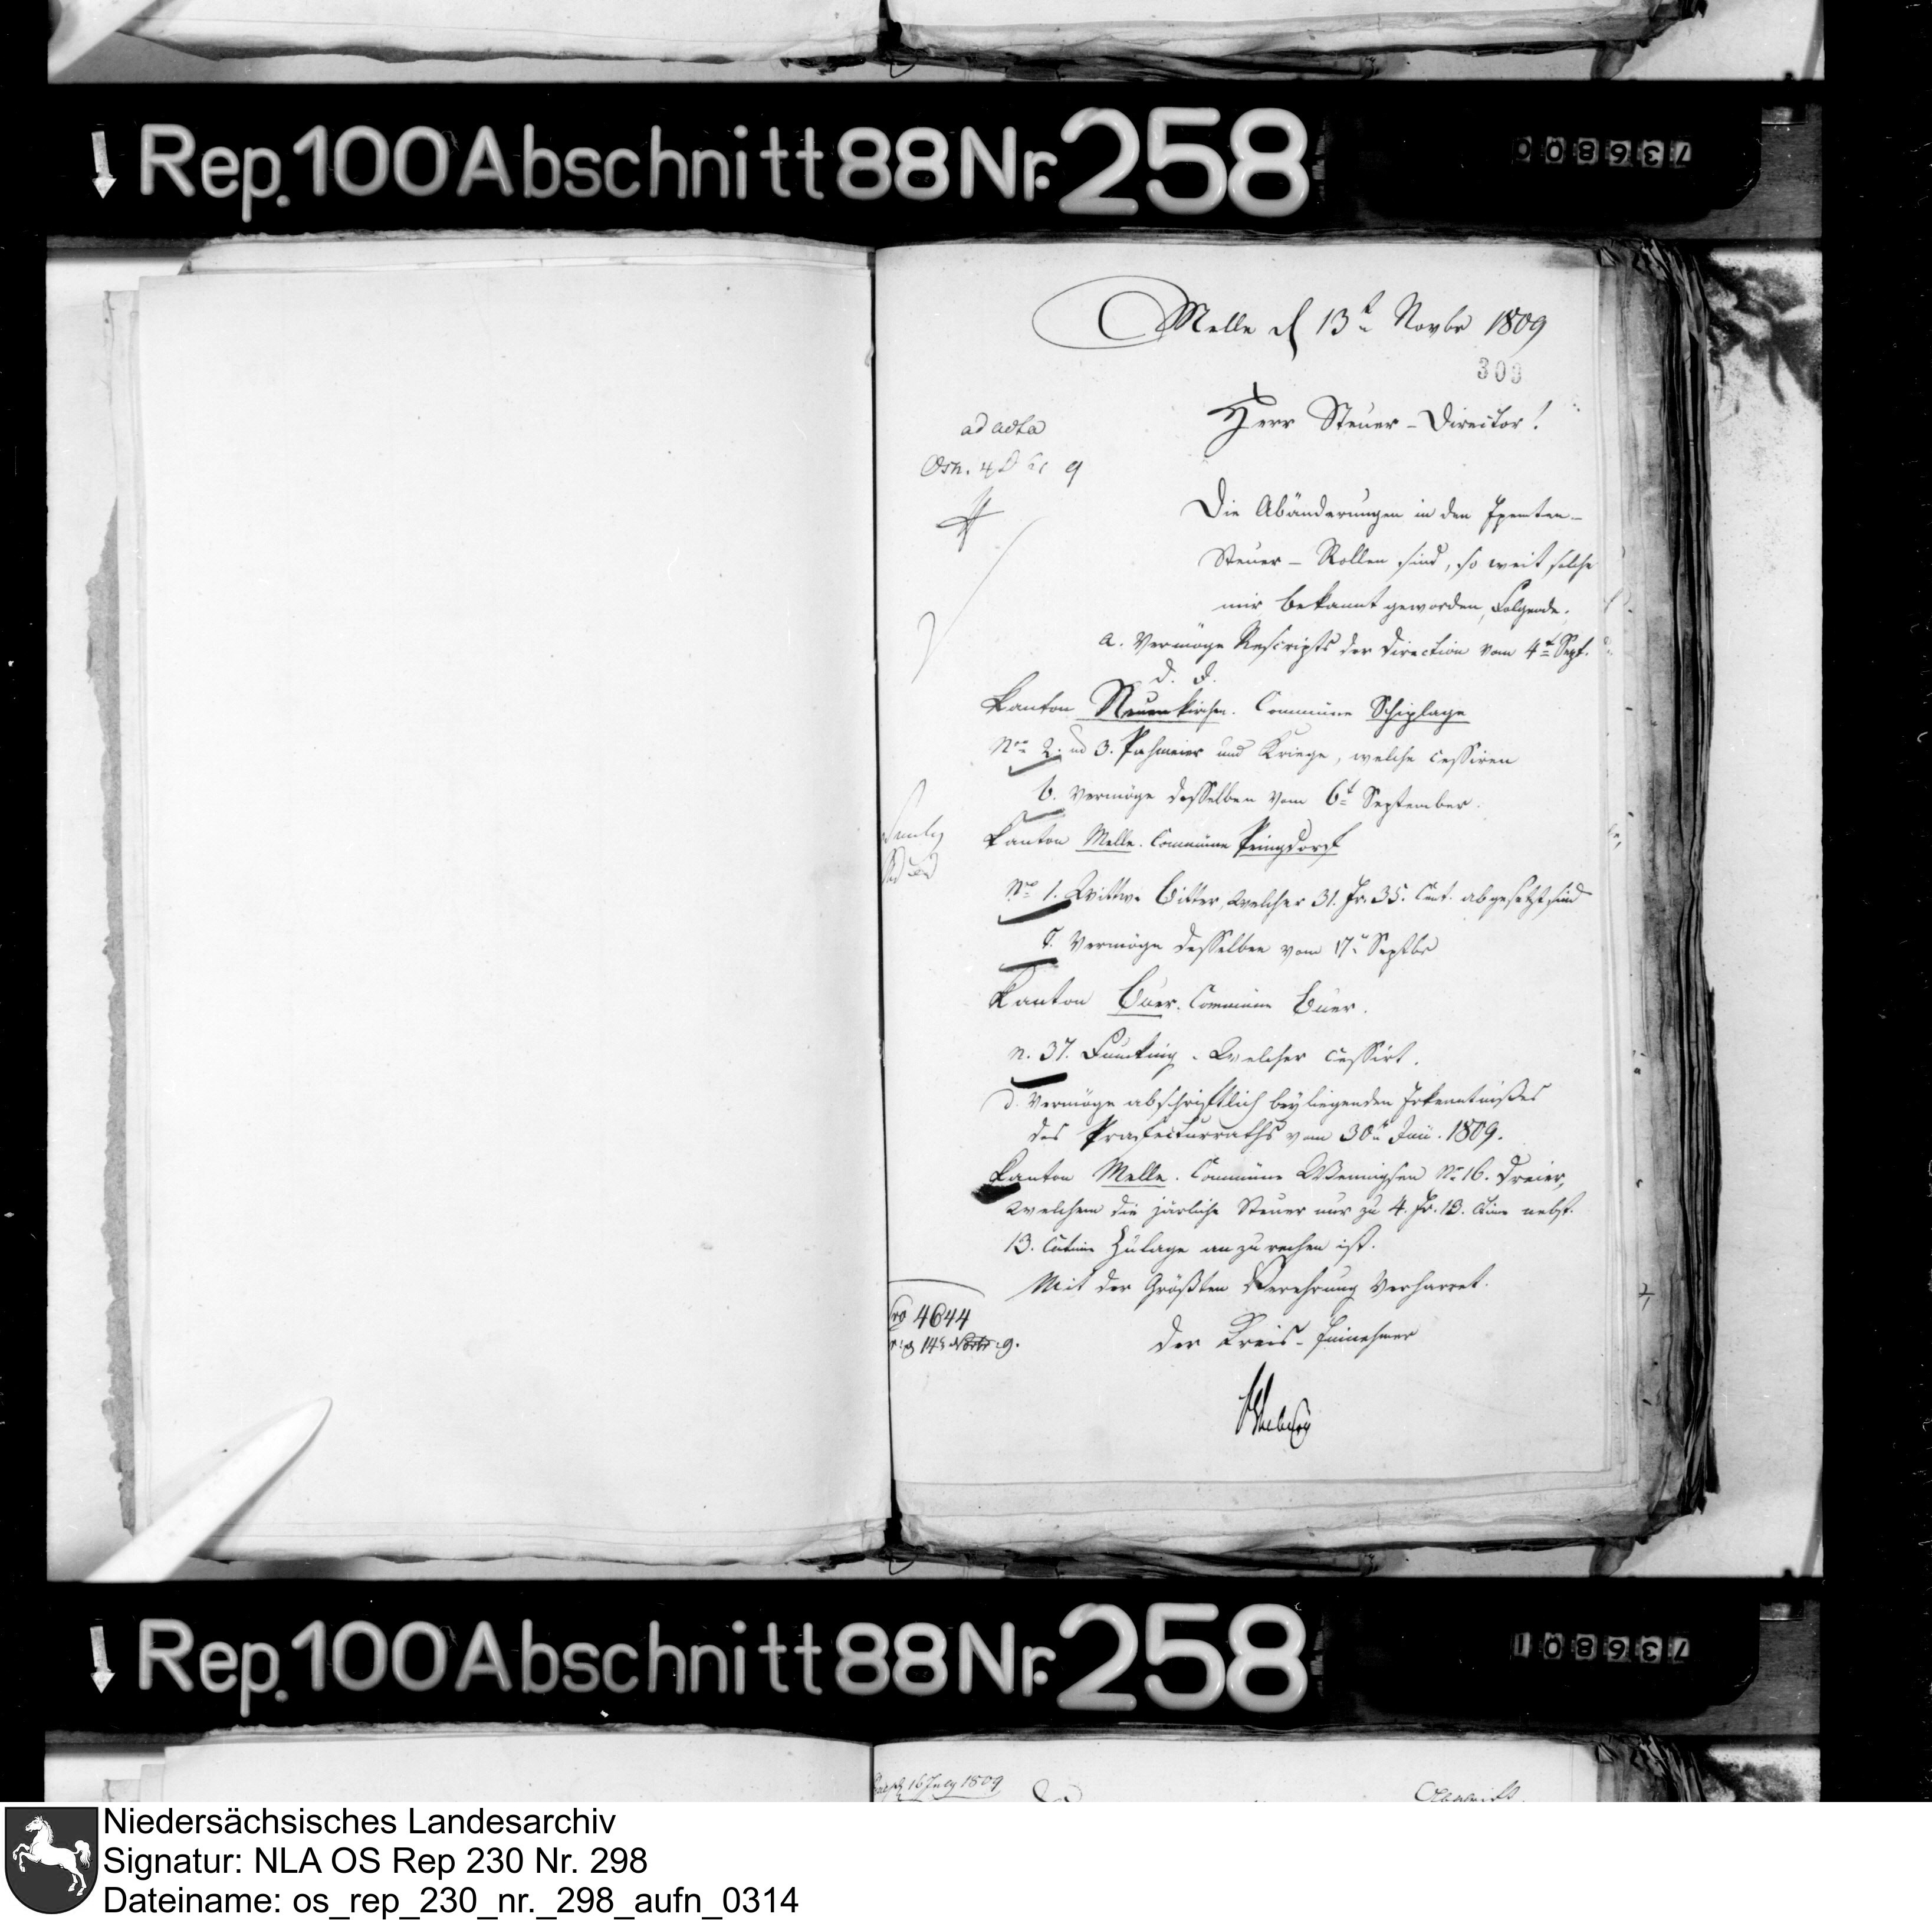 Rep. 100 Abschnitt 88 Nr. 258
736800
Melle d 13t Novbr 1809
309
ad acta
Osn.
Herr Steuer-Director!
Die Abänderungen in den Patenten-
Steuer-Rollen sind, so weit solche
mir bekannt geworden, Folgende.
a. Vermöge Rescripts der Direction vom 4t Sept.
d. J.
Kanton Neuenkirchen. Commüne Schiplage
No 2. u 3. und Kriege, welche cessiren
b. Vermöge desselben vom 6t September.
Kanton Melle. Commüne
No 1. Wittwe Bitter, welcher 31. Fr. 35. Cent. abgesetzt sind
c. Vermöge desselben vom 17t Septbr
Kanton Buer. Commüne Buer.
n. 37. welcher cessirt.
d. Vermöge abschriftlich beyliegenden Erkenntnißes
des Praefecturraths vom 30t 1809.
Kanton Melle. Commüne Wennigsen No 16. Dreier,
welchem die järliche Steuer nur zu 4. Fr. 13. nebst
13. Zulage anzurechen ist.
Mit der Größten Verehrung verharret.
4644
14 Novbr 9.
der Kreis-Einnehmer
Rep. 100 Abschnitt 88 Nr. 258
736801
16 July 1809
Niedersächsisches Landesarchiv
Signatur: NLA OS Rep 230 Nr. 298
Dateiname: os_rep_230_nr._298_aufn_0314